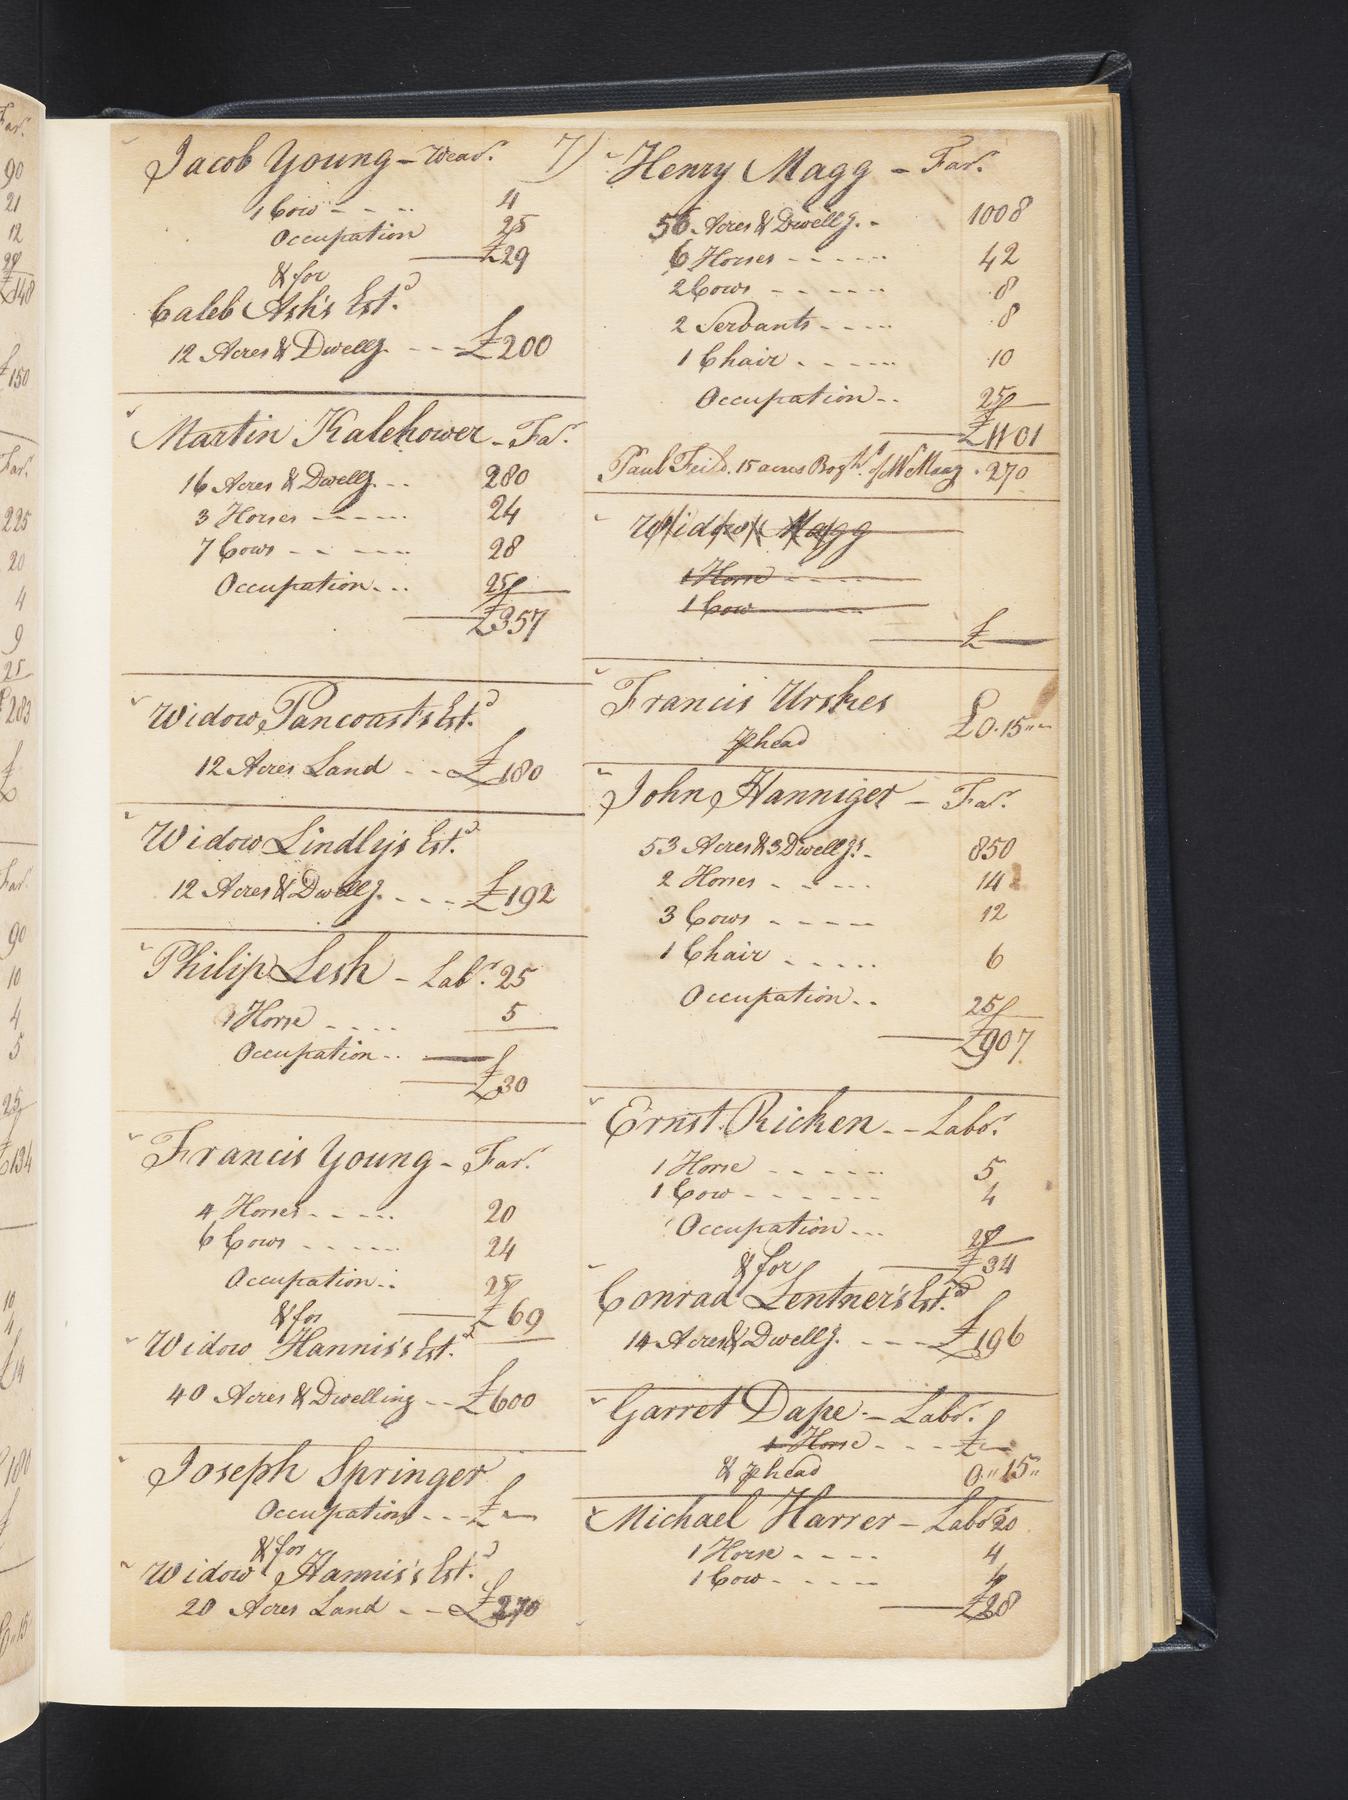 7)
Jacob Young - Weavr.
1 Cow - - - 4
Occupation 25
£29
& for
Caleb Ash's Estd.
12 Acres & Dwellg. - - - £200
Martin Kalehower - Far.
16 Acres & Dwellg. - - 280
3 Horses - - - - 24
7 Cows - - - - - 28
Occupation - - - 25
£357
Widow Pancoast's Estd.
12 Acres Land - - - £180
Widow Lindly's Estd.
12 Acres & Dwellg. - - - £192
Philip Lesh - Labr. 25
1 Horse - - - - 5
Occupation - -
£30
Francis Young - Far.
4 Horses - - - - - 20
6 Cows - - - - - 24
Occupation - - 25
& for £69
Widow Hannis's Estd.
40 Acres & Dwelling - - £600
Joseph Springer
Occupation - - - £ -
& for
Widow Hannis's Estd.
20 Acres Land - - £270
Henry Magg - Far.
56 Acres & Dwellg. - 1008
6 Horses - - - - - 42
2 Cows - - - - - 8
2 Servants - - - - 8
1 Chair - - - - - 10
Occupation - - 25
£1101
Paul Feild. 15 acres Bogh. of W Magg . 270
Widow Magg
1 Horse - - - -
1 Cow
£
Francis Urshes
℔ head £0.15"-
John Hanniger - Far.
53 Acres & 3 Dwellgs. - 850
2 Horses - - - - - 14
3 Cows - - - - - 12
1 Chair - - - - - 6
Occupation - - 25
£907
Ernst Ricken - - Labor.
1 Horse - - - - - - 5
1 Cow - - - - - - - 4
Occupation - - - 25
& for £34
Conrad Lentner's Estd.
14 Acres & Dwellg. - - - £196
Garret Dape - Labr.
1 Horse - - - - £ -
& ℔ head 0"15"
Michael Harrer - Labor 20
1 Horse - - - - 4
1 Cow - - - - - 4
£28